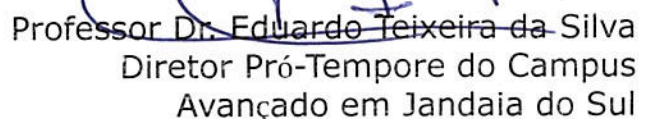 Professor Dr. Eduardo Teixeira da Silva
Diretor Pró-Tempore do Campus
Avançado em Jandaia do Sul